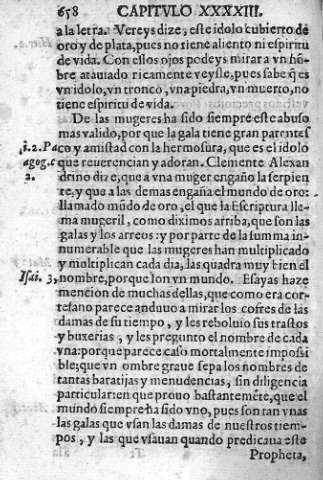 658 CAPITVLO XXXXIII.
a la letra. Vereys dize, este idolo cubierto de
oro y de plata, pues no tiene aliento ni espiritu
de vida. Con essos ojos podeys mirar a vn hõ-
bre atauiado ricamente veysle, pues sabe q̃ es
vn idolo, vn tronco, vna piedra, vn muerto, no
tiene espiritu de vida.
De las mugeres ha sido siempre este abuso
mas valido, por que la gala tiene gran parentes
i. 2. Pæ
co y amistad con la hermosura, que es el idolo
agog. c
que reuerencian y adoran. Clemente Alexan
2.
drino dize, que a vna muger engaño la serpien
te: y que a las demas engaña el mundo de oro:
llamado mũdo de oro, el que la Escriptura lle-
ma mugeril, como diximos arriba, que son las
galas y los arreos: y por parte de la summa in-
numerable que las mugeres han multiplicado
y multiplican cada dia, las quadra muy bien el
Isai. 3,
nombre, porque son vn mundo. Esayas haze
mencion de muchas dellas, que como era cor-
tesano parece anduuo a mirar los cofres de las
damas de su tiempo, y les reboluio sus trastos
y buxerias, y les pregunto el nombre de cada
vna: porque parece caso mortalmente impossi
ble; que vn ombre graue sepa los nombres de
tantas baratijas y menudencias, sin diligencia
particular: en que prouo bastantemẽte, que el
mundo siempre ha sido vno, pues son tan vnas
las galas que vsan las damas de nuestros tiem-
pos, y las que vsauan quando predicaua este
Propheta,